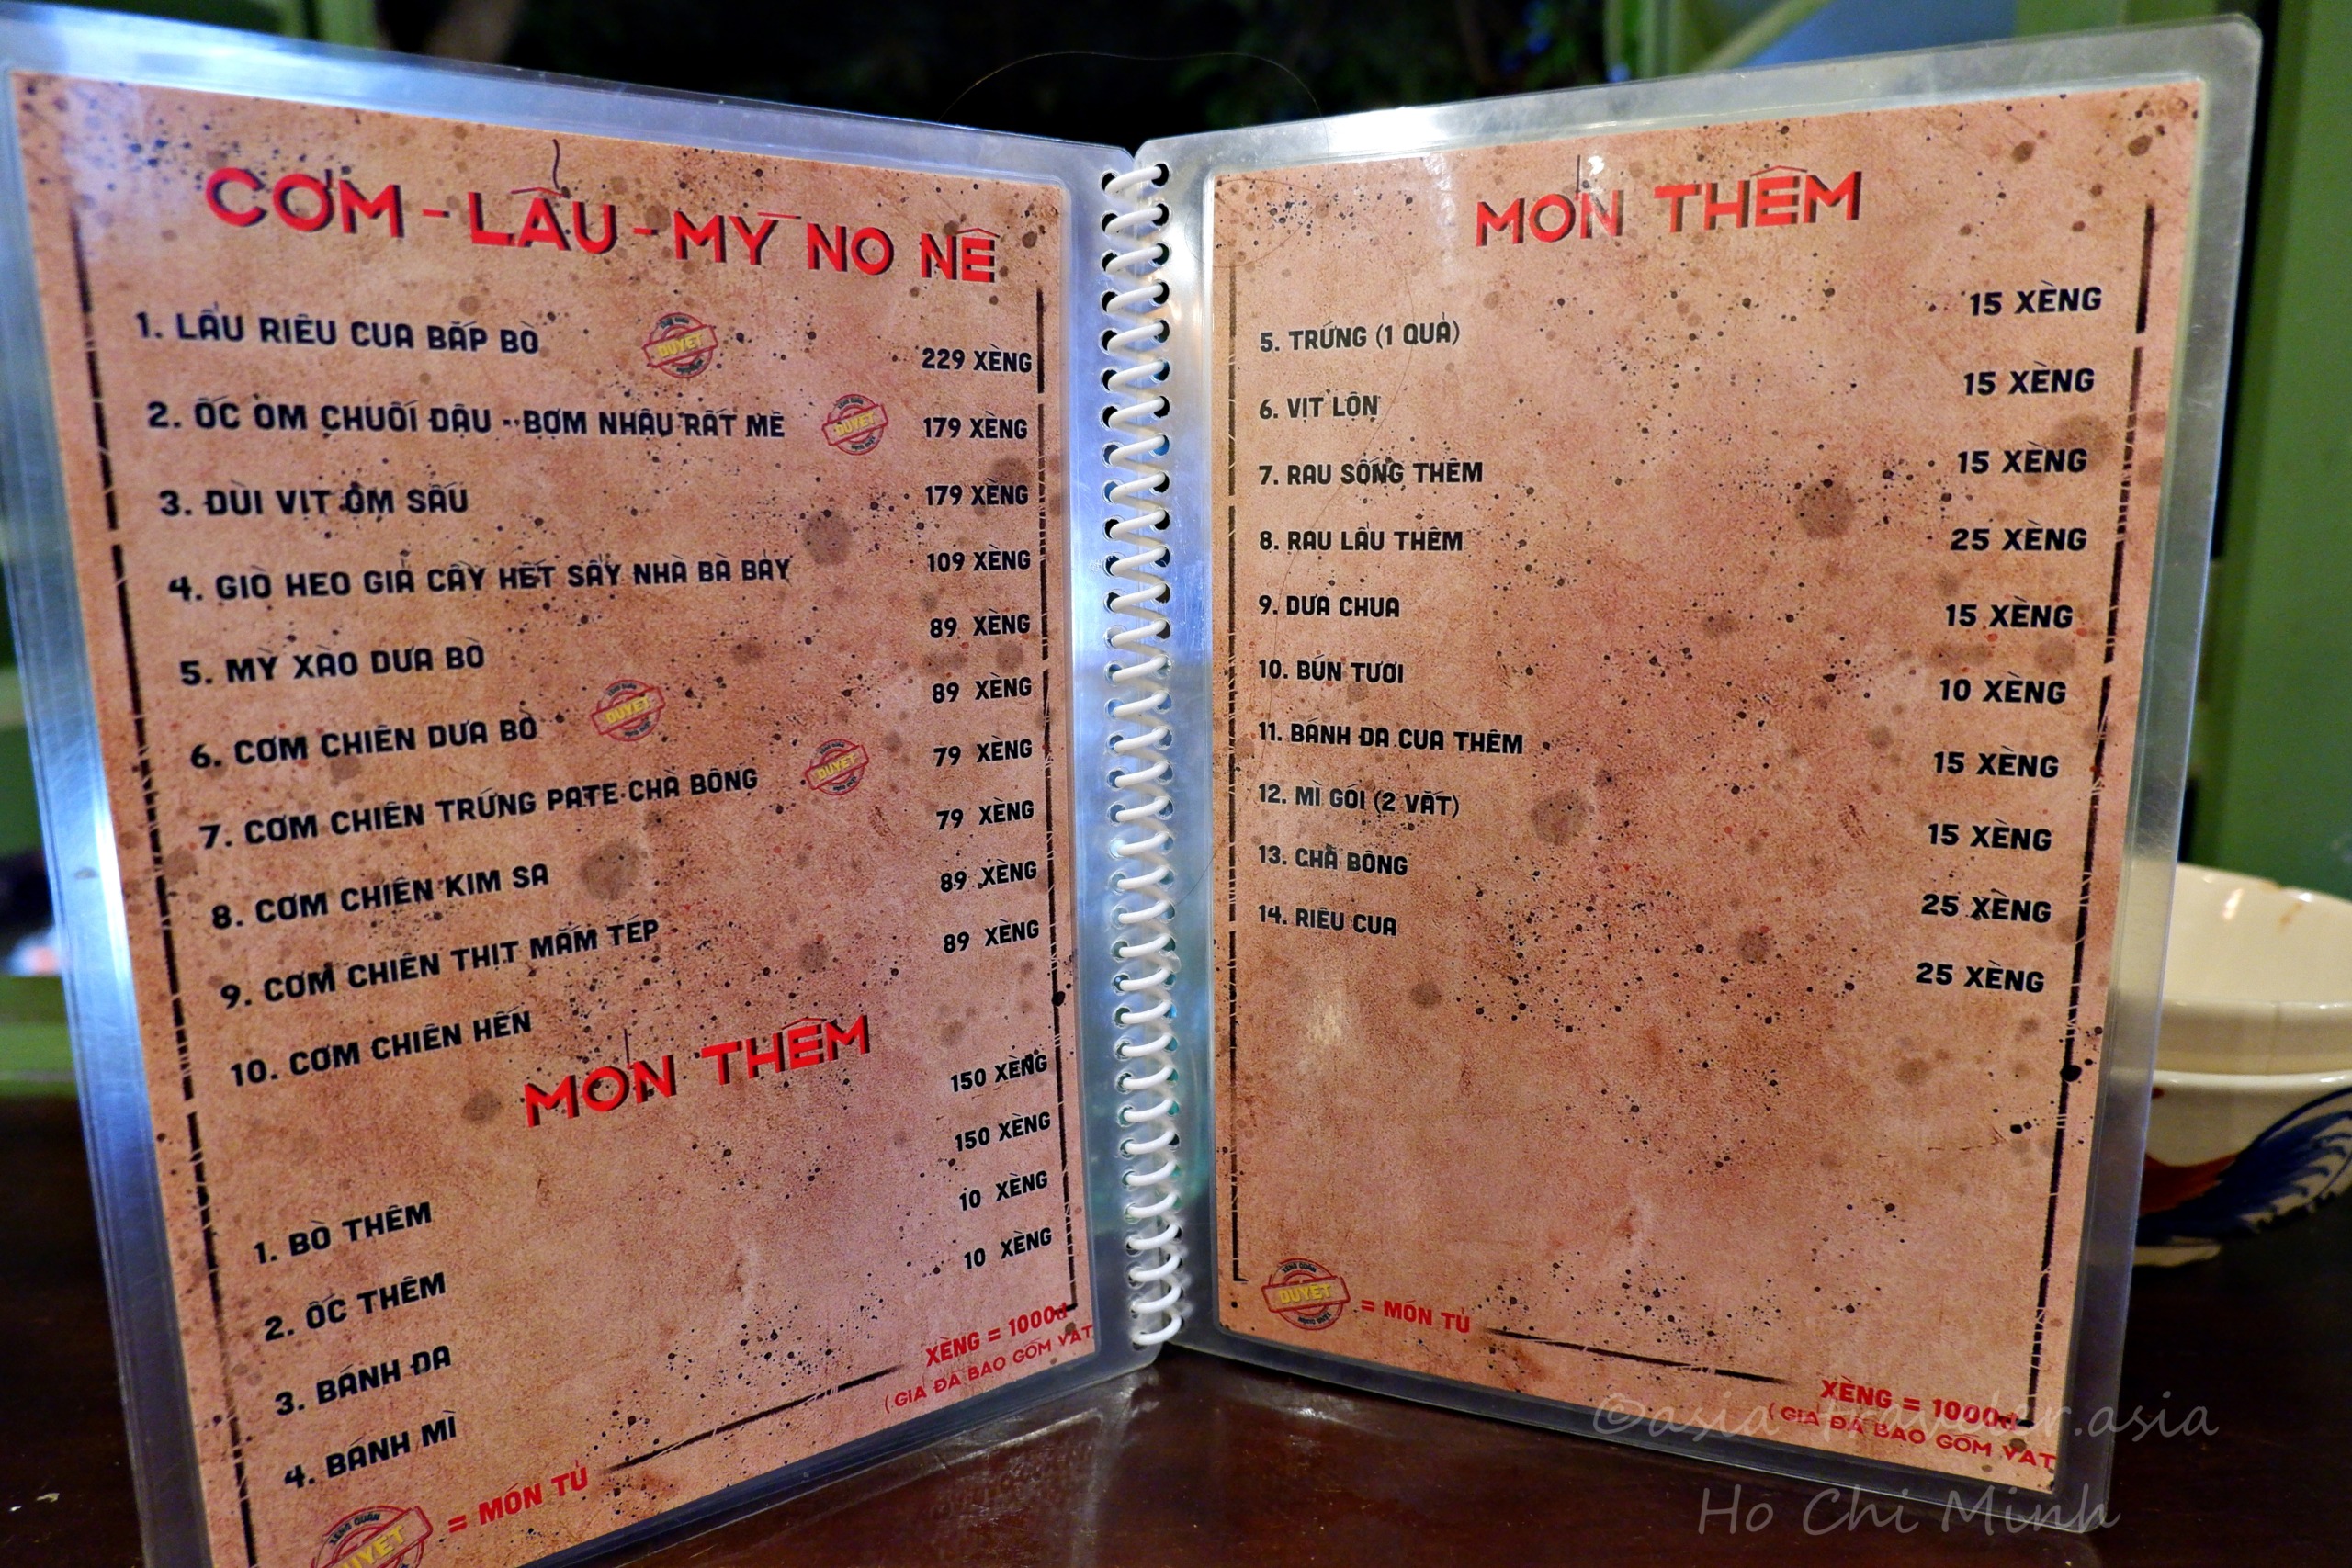 CƠM - LẨU - MỲ NO NÊ
1. LẨU RIÊU CUA BẮP BÒ
DUYỆT
229 XÈNG
2. ỐC OM CHUỐI ĐẬU - BỢM NHẬU RẤT MÊ
DUYỆT
179 XÈNG
3. ĐÙI VỊT OM SẤU
179 XÈNG
4. GIÒ HEO GIẢ CẦY HẾT SẨY NHÀ BÀ BẢY
109 XÈNG
5. MỲ XÀO DƯA BÒ
89 XÈNG
6. CƠM CHIÊN DƯA BÒ
DUYỆT
89 XÈNG
7. CƠM CHIÊN TRỨNG PATE CHÀ BÔNG
DUYỆT
79 XÈNG
8. CƠM CHIÊN KIM SA
79 XÈNG
9. CƠM CHIÊN THỊT MẮM TÉP
89 XÈNG
10. CƠM CHIÊN HẾN
89 XÈNG
MÓN THÊM
1. BÒ THÊM
150 XÈNG
2. ỐC THÊM
150 XÈNG
3. BÁNH ĐA
10 XÈNG
4. BÁNH MÌ
10 XÈNG
XÈNG QUÁN
DUYỆT
= MÓN TỦ
XÈNG = 1000đ
( GIÁ ĐÃ BAO GỒM VAT
MÓN THÊM
5. TRỨNG (1 QUẢ)
15 XÈNG
6. VỊT LỘN
15 XÈNG
7. RAU SỐNG THÊM
15 XÈNG
8. RAU LẨU THÊM
25 XÈNG
9. DƯA CHUA
15 XÈNG
10. BÚN TƯƠI
10 XÈNG
11. BÁNH ĐA CUA THÊM
15 XÈNG
12. MÌ GÓI (2 VẮT)
15 XÈNG
13. CHÀ BÔNG
25 XÈNG
14. RIÊU CUA
25 XÈNG
XÈNG QUÁN
DUYỆT
= MÓN TỦ
XÈNG = 1000đ
( GIÁ ĐÃ BAO GỒM VAT
©asia-traveler.asia
Ho Chi Minh